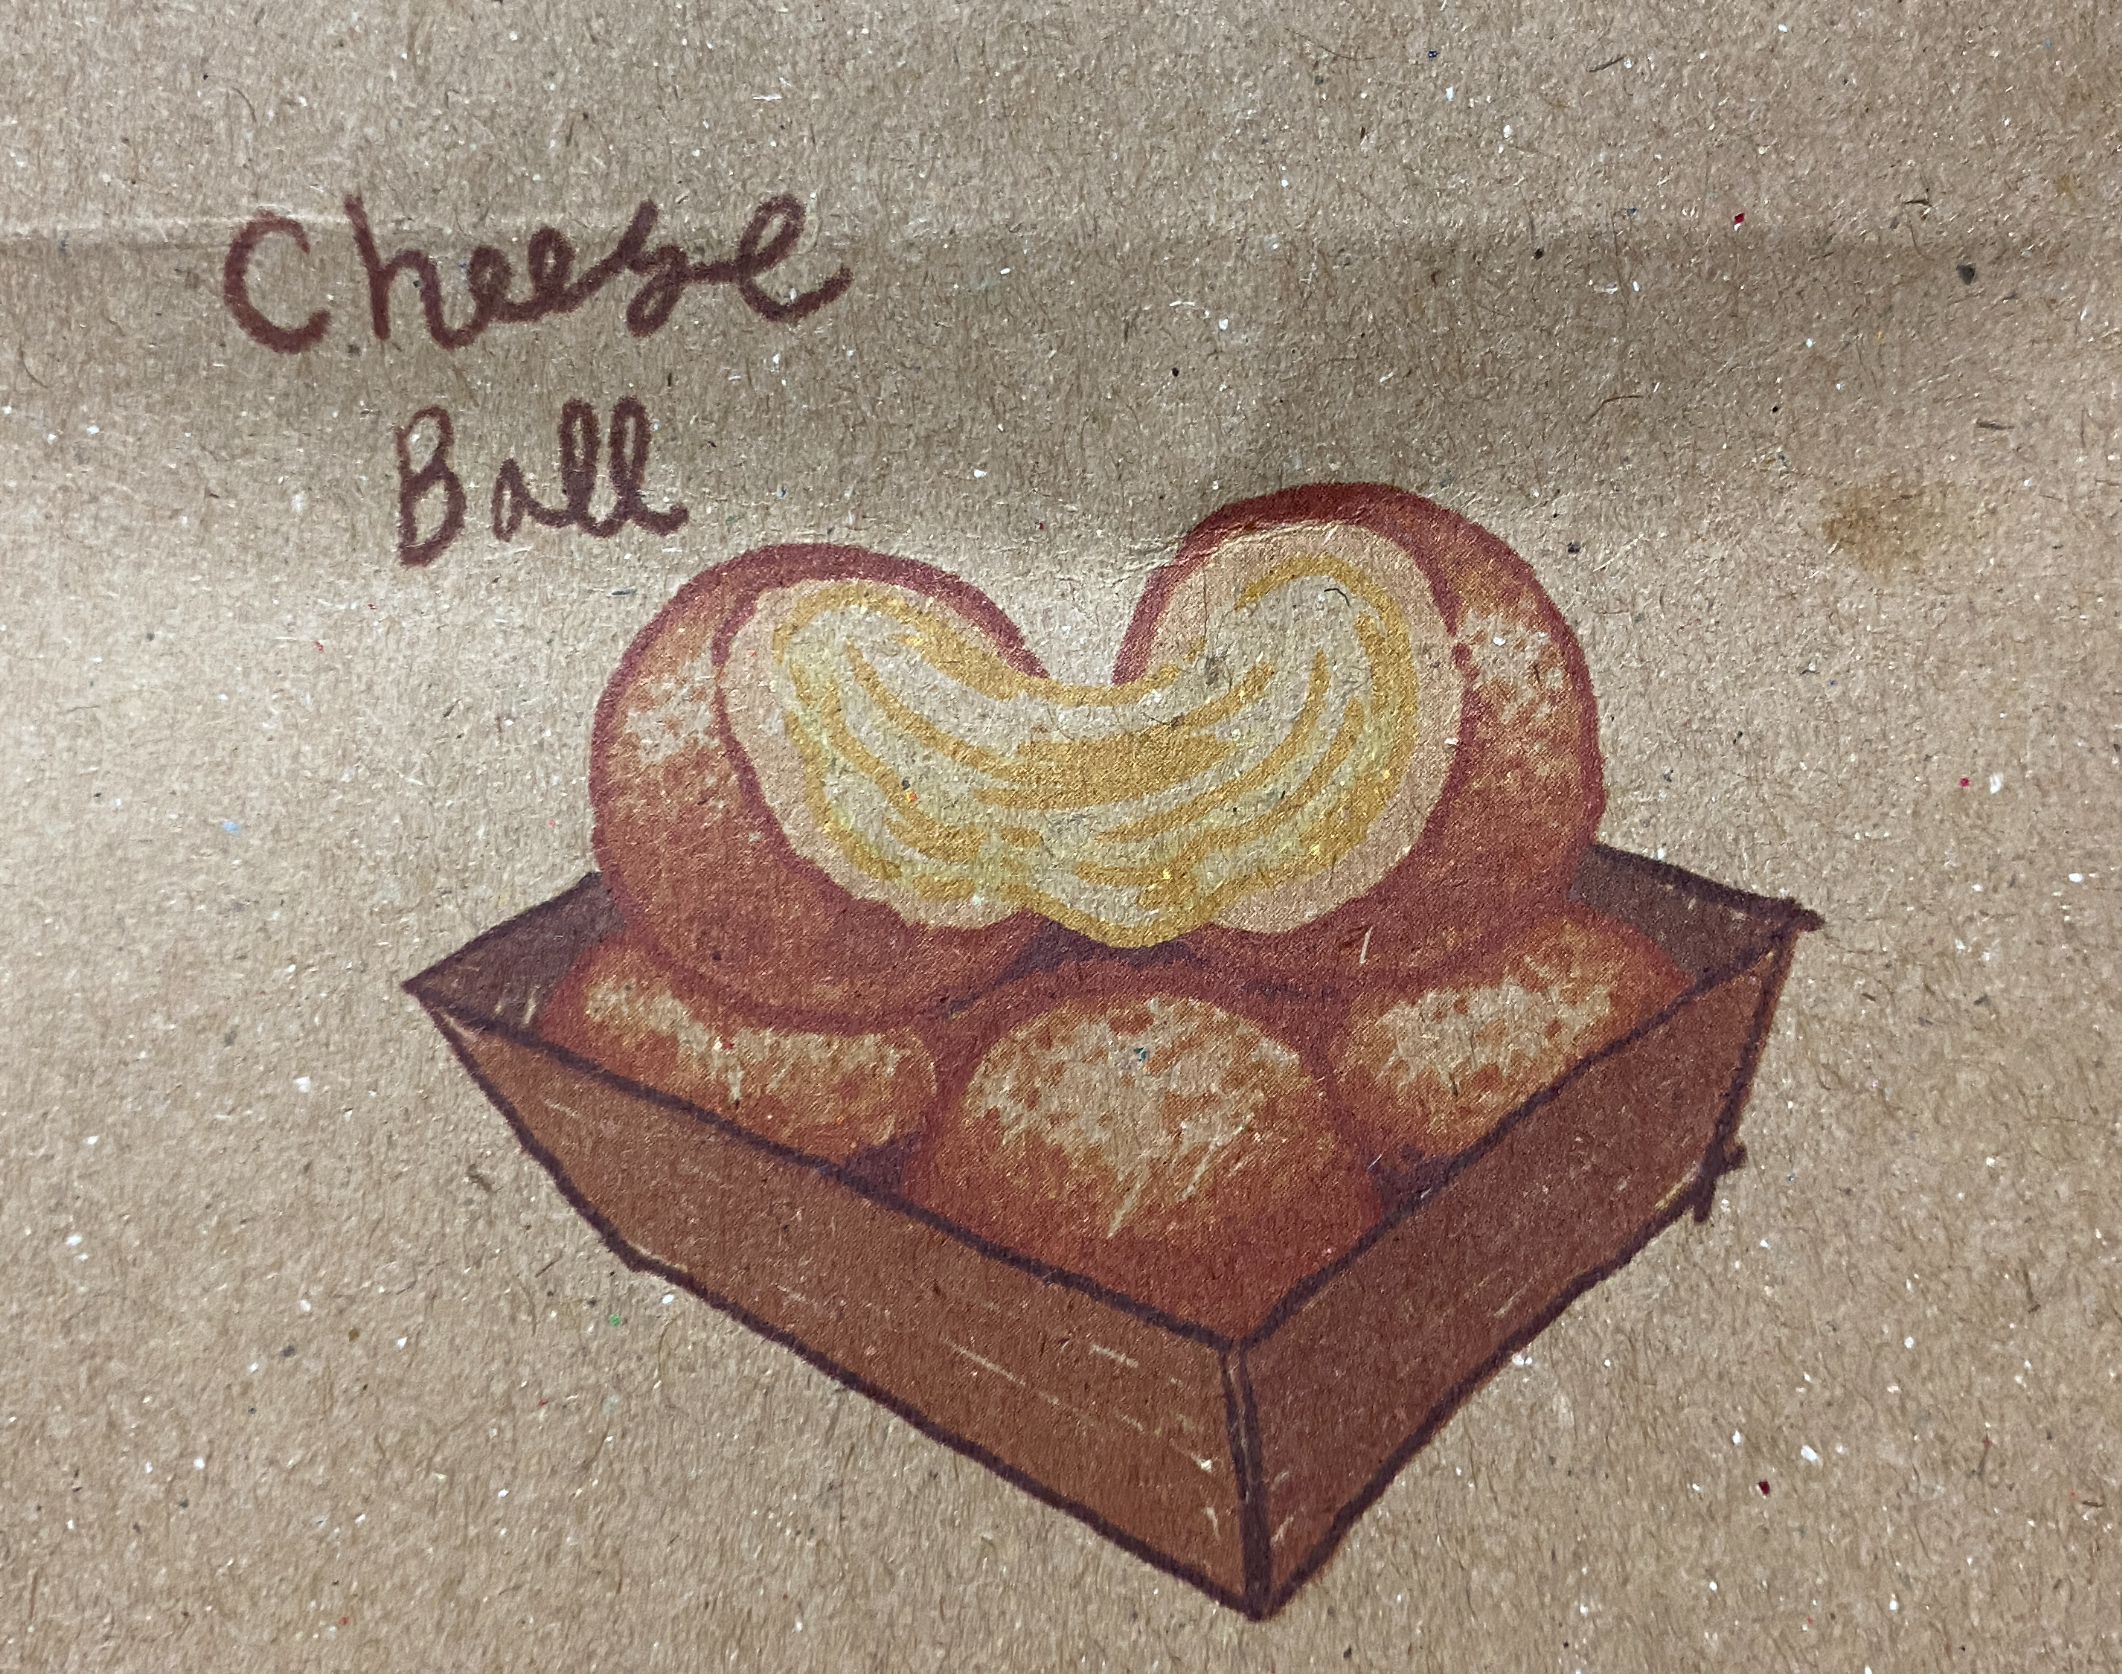 Cheese
Ball